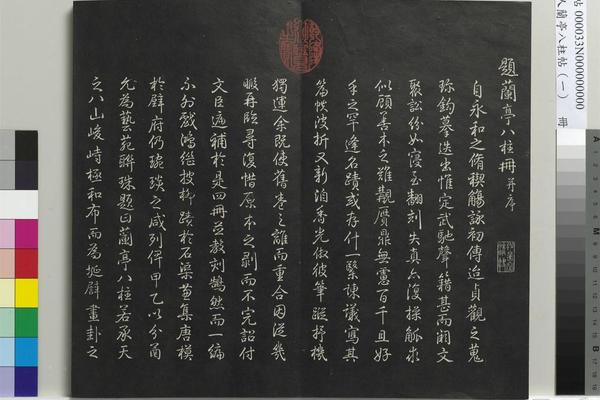 題蘭亭八柱冊 并序
自永和之脩稧觴詠初傳迨貞觀之蒐
珍鈎摹迭出惟定武馳聲籍甚而湘文
聚訟紛如寖至翻刻失真亦復操觚求
似顧善本之難觀贗鼎無慮百千且好
手之罕逢名蹟或存什一繄諫議寫其
篇帙波折又新洎香光倣彼筆蹤抒機
獨運余既使舊卷之離而重合因從幾
暇再臨尋復惜原本之剝而不完詔付
文臣遍補於是四冊並教刻鵠然而一編
不外戲鴻繼披柳蹟於石渠兼集唐模
於壁府仍琬琰之咸列俾甲乙以分函
允為藝苑聯珠題曰蘭亭八柱若承天
之八山峻峙極和布而為埏壁畫卦之
帖 000033N000000000
人蘭亭八柱帖（一） 冊